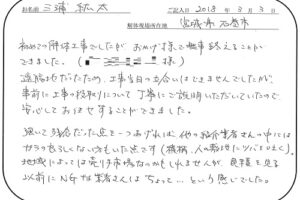 お名前 三浦 紘太 ご記入日 2018年3月3日
解体現場所在地 宮城県石巻市
初めての解体工事でしたが おかげ様で無事終えることが
できました。( 様)
遠隔地だったため、工事当日の立会いはできませんでしたが、
事前に工事の段取りについて丁寧にご説明いただいていたので
安心しておまかせすることができました。
強いて残念だった点を一つあげれば、他の紹介業者さんの中には
ガラの悪ろしくない方もいた点です(横柄、人の敷地にツバをはく)。
地域によっては売り手市場なのかもしれませんが、見積を見る
以前にNGな業者さんはちょっと…という感じでした。